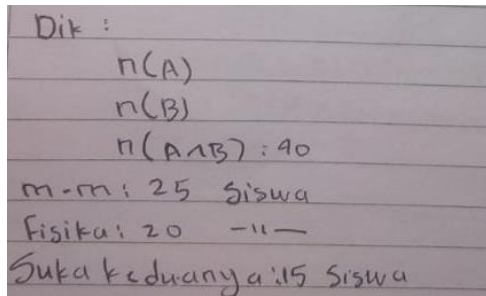 Dik :
n(A)
n(B)
n(A∩B) : 40
m-m : 25 Siswa
Fisika : 20 -11-
Suka keduanya : 15 Siswa